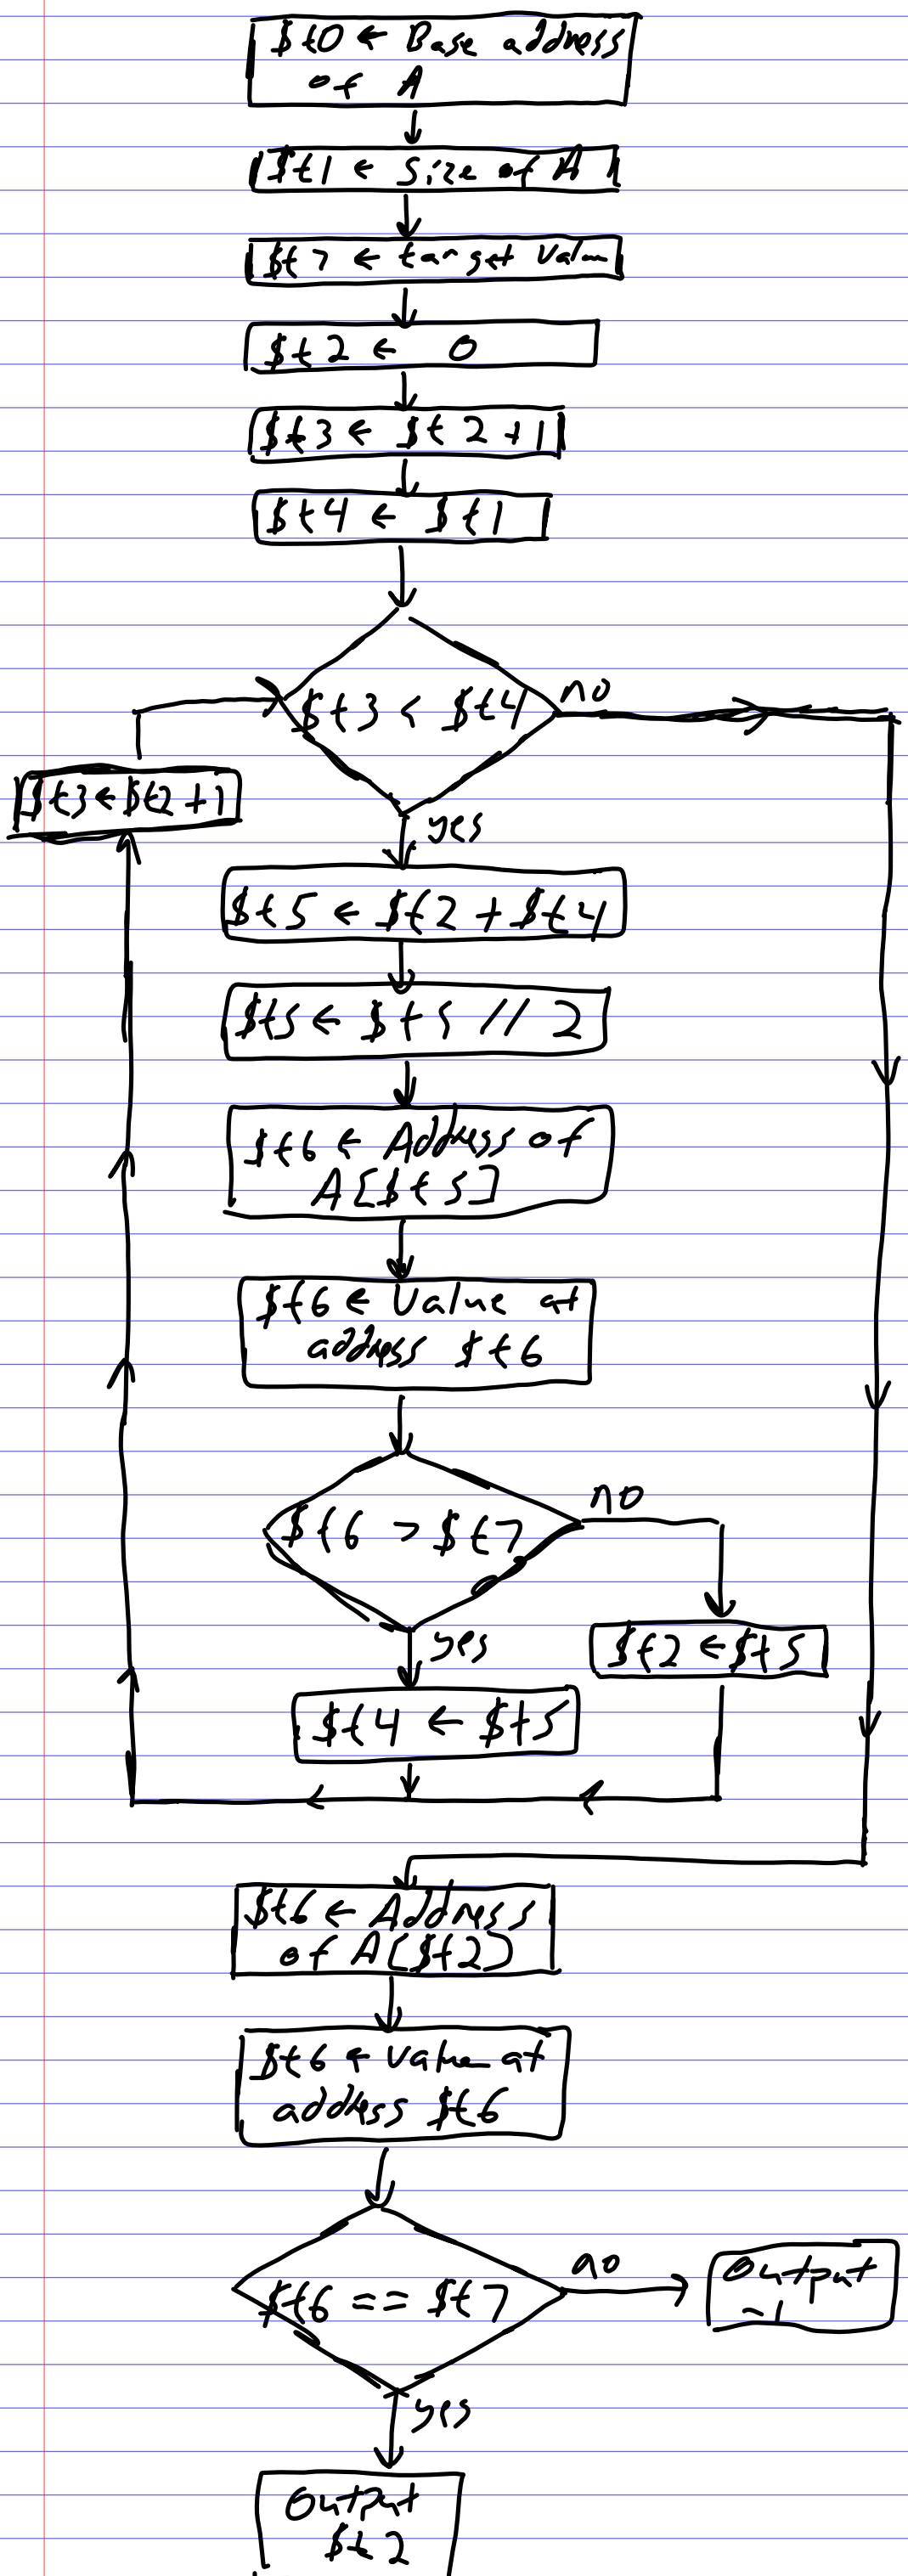 $t0 ← Base address
of A
$t1 ← Size of A
$t7 ← target Value
$t2 ← 0
$t3 ← $t2 + 1
$t4 ← $t1
$t3 < $t4
no
$t3 ← $t2 + 1
yes
$t5 ← $t2 + $t4
$t5 ← $t5 // 2
$t6 ← Address of
A[$t5]
$t6 ← Value at
address $t6
$t6 > $t7
no
yes
$t2 ← $t5
$t4 ← $t5
$t6 ← Address
of A[$t2]
$t6 ← Value at
address $t6
$t6 == $t7
no
Output
-1
yes
Output
$t2